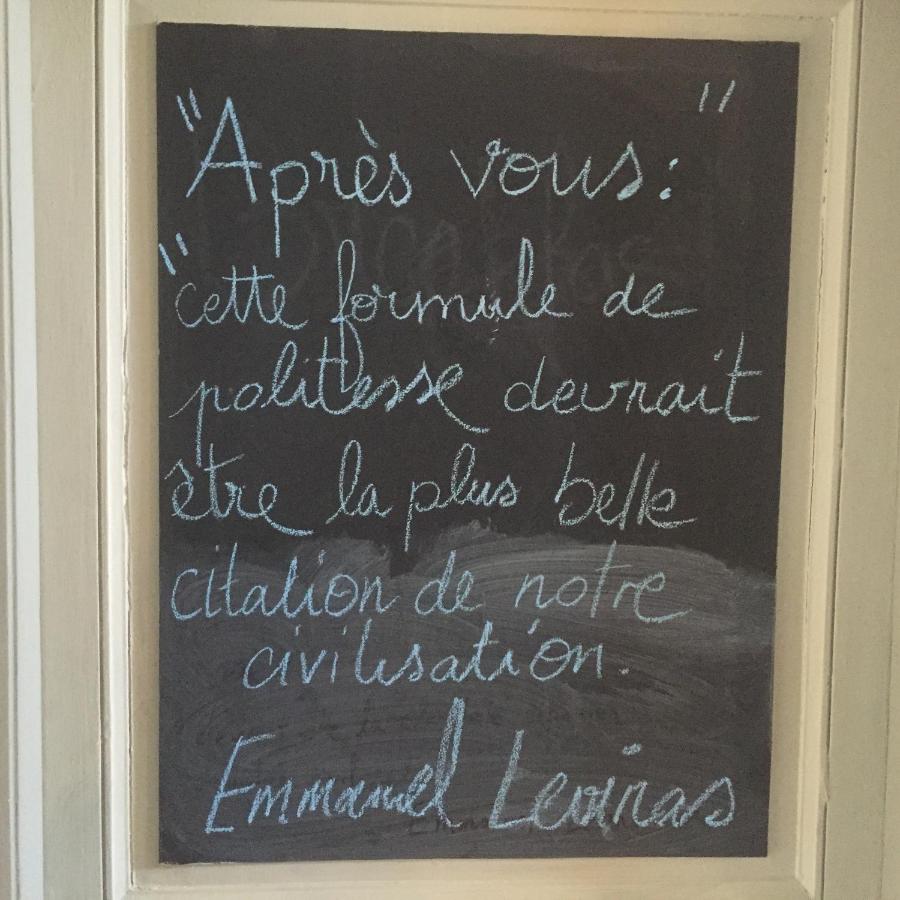 "Après vous:"
"cette formule de
politesse devrait
être la plus belle
citation de notre
civilisation.
Emmanuel Levinas